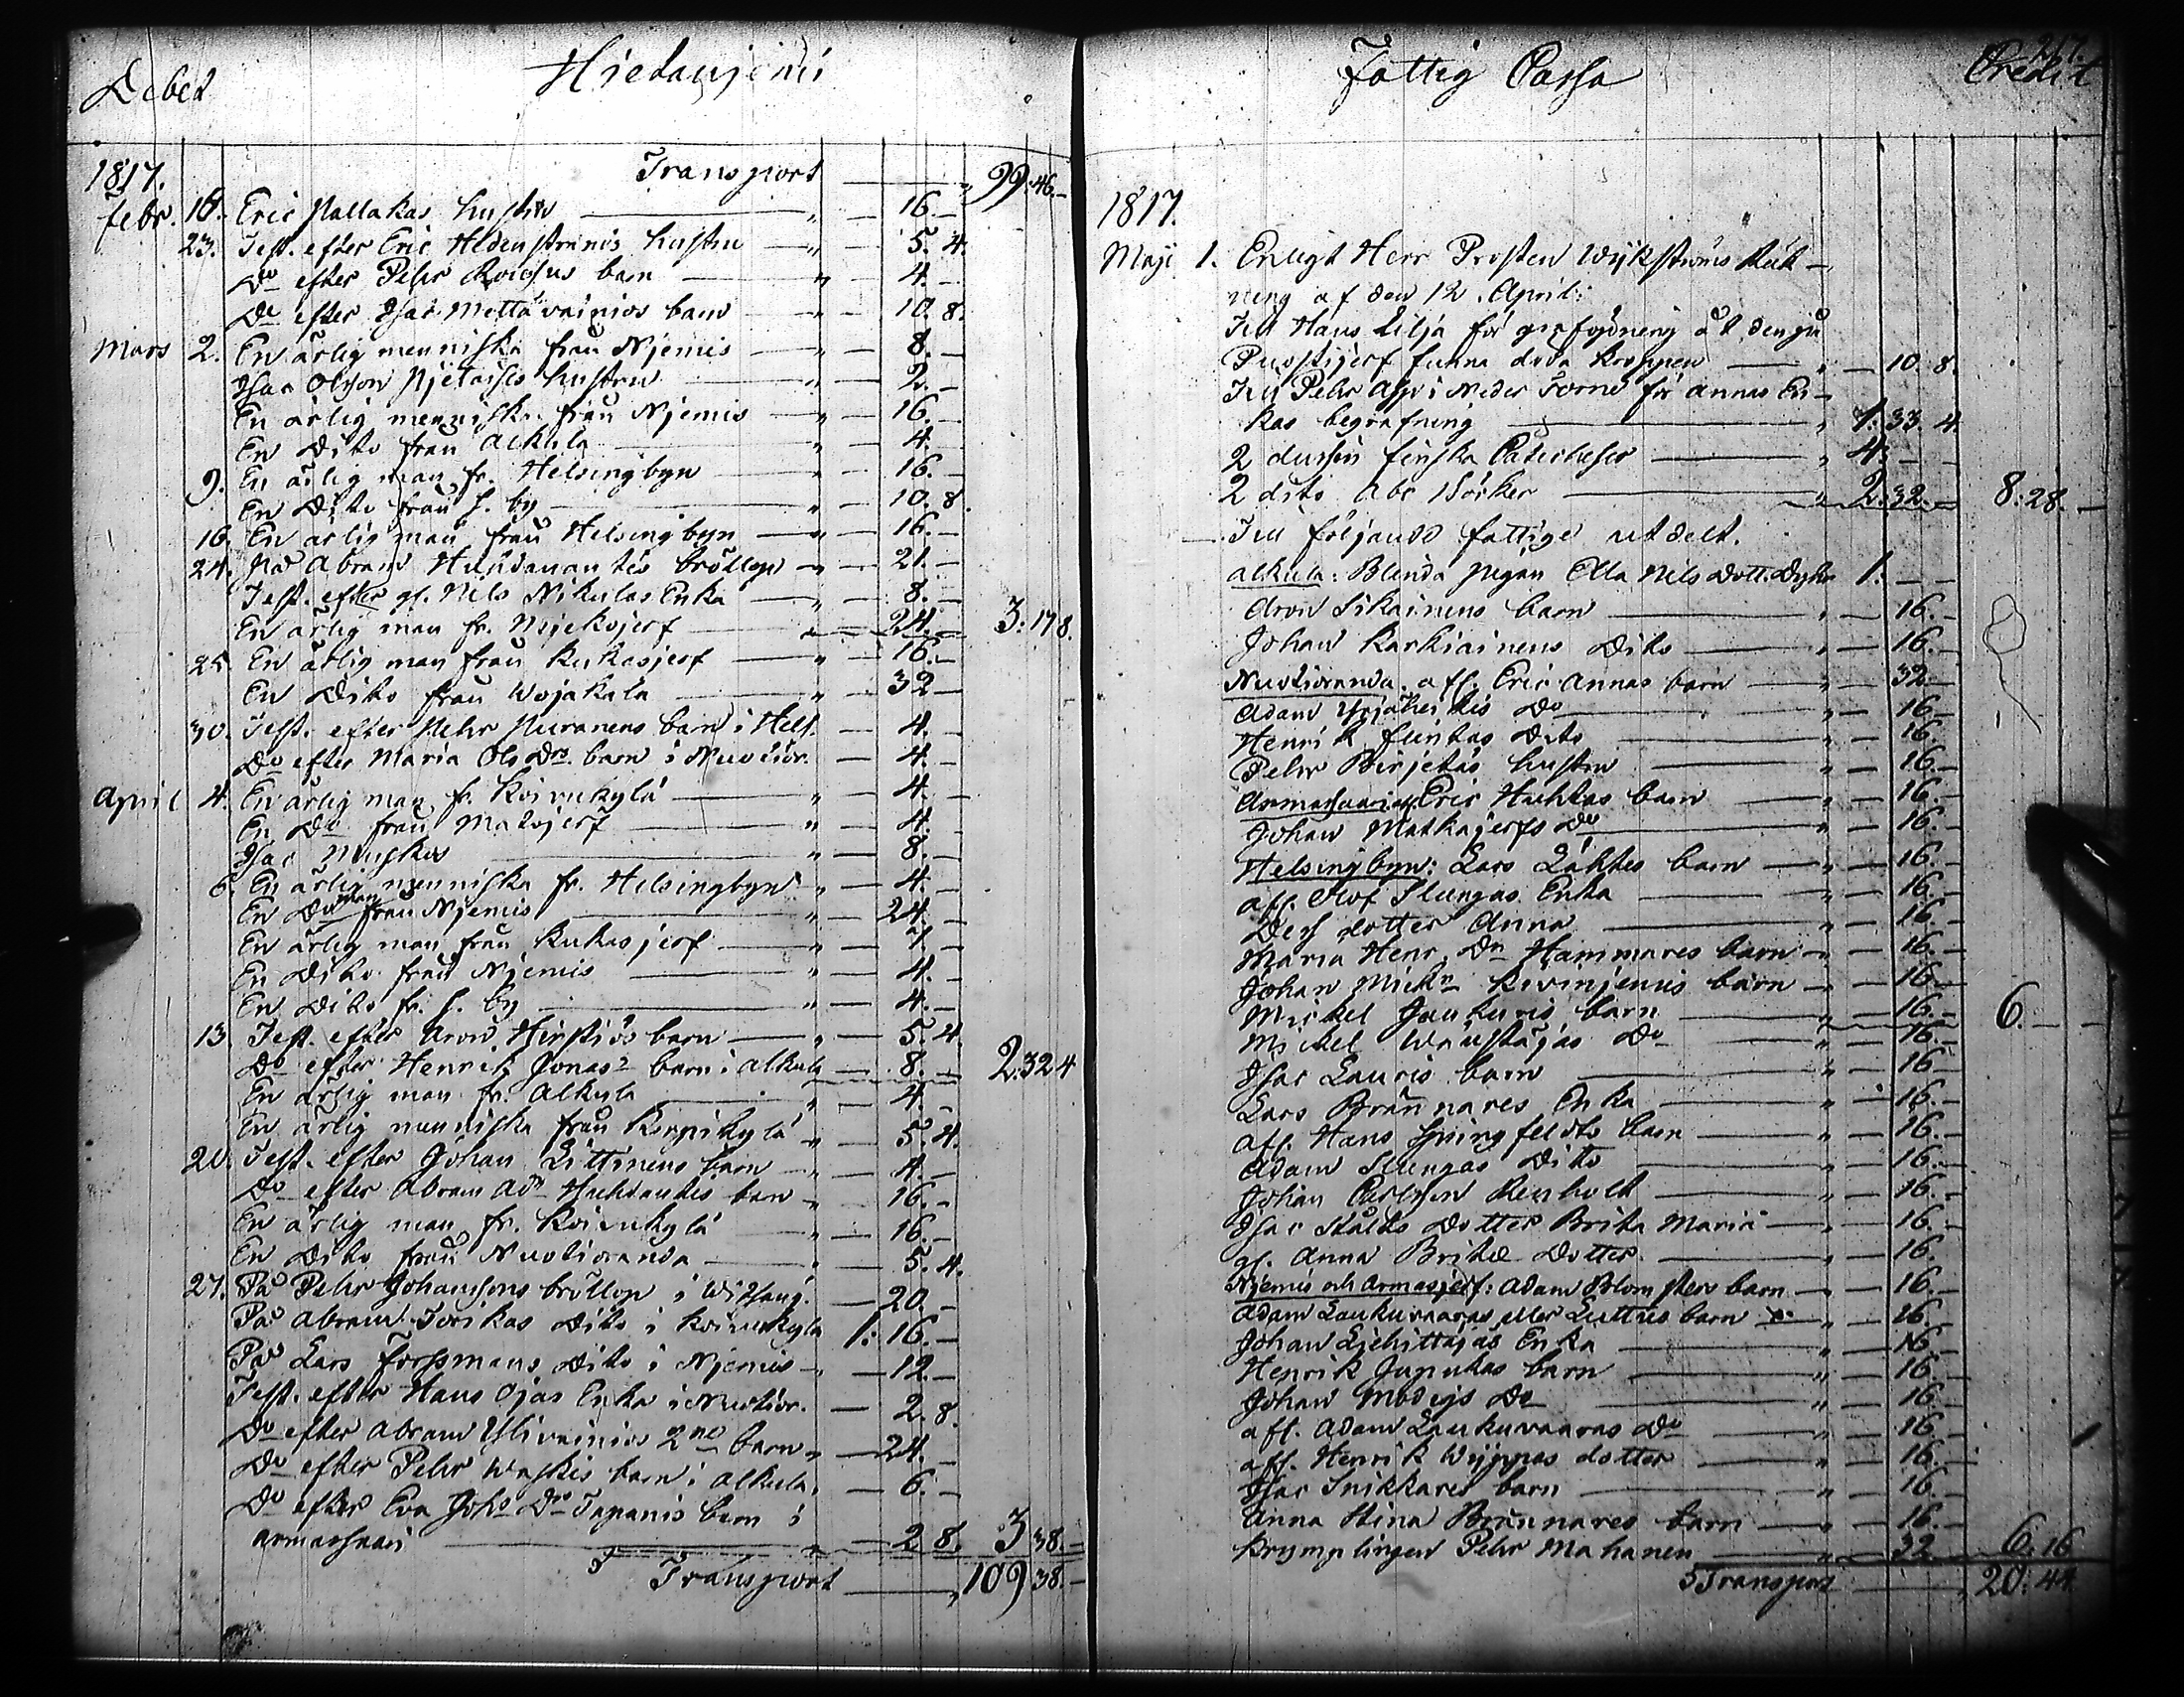 Debet Hietaniemi
1817. Transport " 99:46.–
Febr. 16. Eric Pallakas hustru " – 16.–
23. Test. efter Eric Hedenströms hustru " – 5. 4.
Do efter Pehr barn " 4.–
Do efter Isac Mettävainios barn " 10. 8.
Mars 2. En ärlig menniska från Niemis " 8.–
Isac Olsson hustru " 2.–
En ärlig menniska från Niemis " 16.–
En Dito från Alkula " 4.
9. En ärlig man fr. Helsingbyn " 16.–
En Dito från s. by " 10. 8.
16. En ärlig man från Helsingbyn " 16.–
24. På Abram bröllop " 21.–
Test. efter gl. Nils Nikulas Enka " 8.–
En ärlig man fr. " 24.– 3:17 8.
25. En ärlig man från Kukasjerf " 16.–
En Dito från Wojakala " 32–
30. Test. efter Pehr Puranens barn i Hels. – 4.–
Do efter Maria Ols Dr. barn i Nuotior. – 4.–
April 4. En ärlig man fr. Koivukylä " 4.–
En Do från Matojerf " 4.–
Isac " 8.–
6. En ärlig menniska fr. Helsingbyn " 4.–
En Do man från Niemis " 24.–
En ärlig man från Kukasjerf " –
En Dito från Niemis " 4.–
En Dito fr. s. by " 4.–
13. Test. efter Arvid barn " 5. 4.
Do efter Henrik Jonas barn i Alkula – 8.– 2:32 4
En ärlig man fr. Alkula " 4.–
En ärlig menniska från Korpikylä " 5. 4.
20. Test. efter Johan Littinens barn " 4.–
Do efter Abram Ads barn " 16.–
En ärlig man fr. Koivukylä " 16.–
En Dito från Nuotioranda " 5. 4.
27. På Pehr Johanssons bröllop i Witsani. – 20.–
På Abram Dito i Koivukylä 1: 16.–
På Lars Forssmans Dito i Niemis " 12.–
Test. efter Hans Ojas Enka i Nuotior. – 2. 8.
Do efter Abram Ylivainios 2ne barn " 24.–
Do efter Pehr barn i Alkula. – 6.–
Do efter Eva Johs Dr Tapanis barn i
Armassaari " 2 8. 3 38.–
Transport " 109 38.–
217.
Fattig Cassa Credit
1817.
Maji 1. Enligt Herr Prosten Wikströms Räk-
ning af den 12. April:
Till Hans Lilja för åt den på
funna döda kroppen " 10. 8.
Till Pehr i Neder Torne för Annas En-
kas begrafning " 1: 33. 4.
2 dussin finska Catecheser " 4:––
2 dito Abc Böcker " 2:32.– 8:28.–
Till följande fattige utdelt.
Alkula: Blinda pigan Ella Nils Dott. 1:––
Arvid Sikainens barn " 16.–
Johan Karkiainens Dito " 16.–
Nuotioranda. afl. Eric Annas barn " 32.–
Adam Do " 16.–
Henrik Dito " 16.
Pehr hustru " 16.–
Armassaari: Eric Huhtas barn " 16.–
Johan Matkajerfs Do " 16.–
Helsingbyn: Lars barn " 16.–
afl. Olof Slungas Enka " 16.
Dess dotter Anna " 16.–
Maria Henr. Dr Hammares barn " 16.–
Johan Micks Kivinjemis barn " 16.–
Mickel barn " 16.– 6.––
Mickel Do " 16.–
Isac Lauris barn " 16.–
Lars Brännares Enka " 16.–
afl. Hans Springfeldts barn " 16.–
Adam Slungas Dito " 16.–
Johan Carlsson Renholt " 16.–
Isac Dotter Brita Maria " 16.–
gl. Anna Brita Dotter " 16.
Niemis och Armasjerf: Adam Blomsters barn " 16.–
Adam Laukuvaaras eller barn " 16.
Johan Enka " 16
Henrik Juputas barn " 16.–
Johan Modigs Do " 16.
afl. Adam Laukuvaaras Do " 16.–
afl. Henrik dotter " 16.–
Isac Snikkares barn " 16.–
Anna Stina Brännares barn " 16.–
Krymplingen Pehr Mahanen " 32 6.16
Transport " 20:44